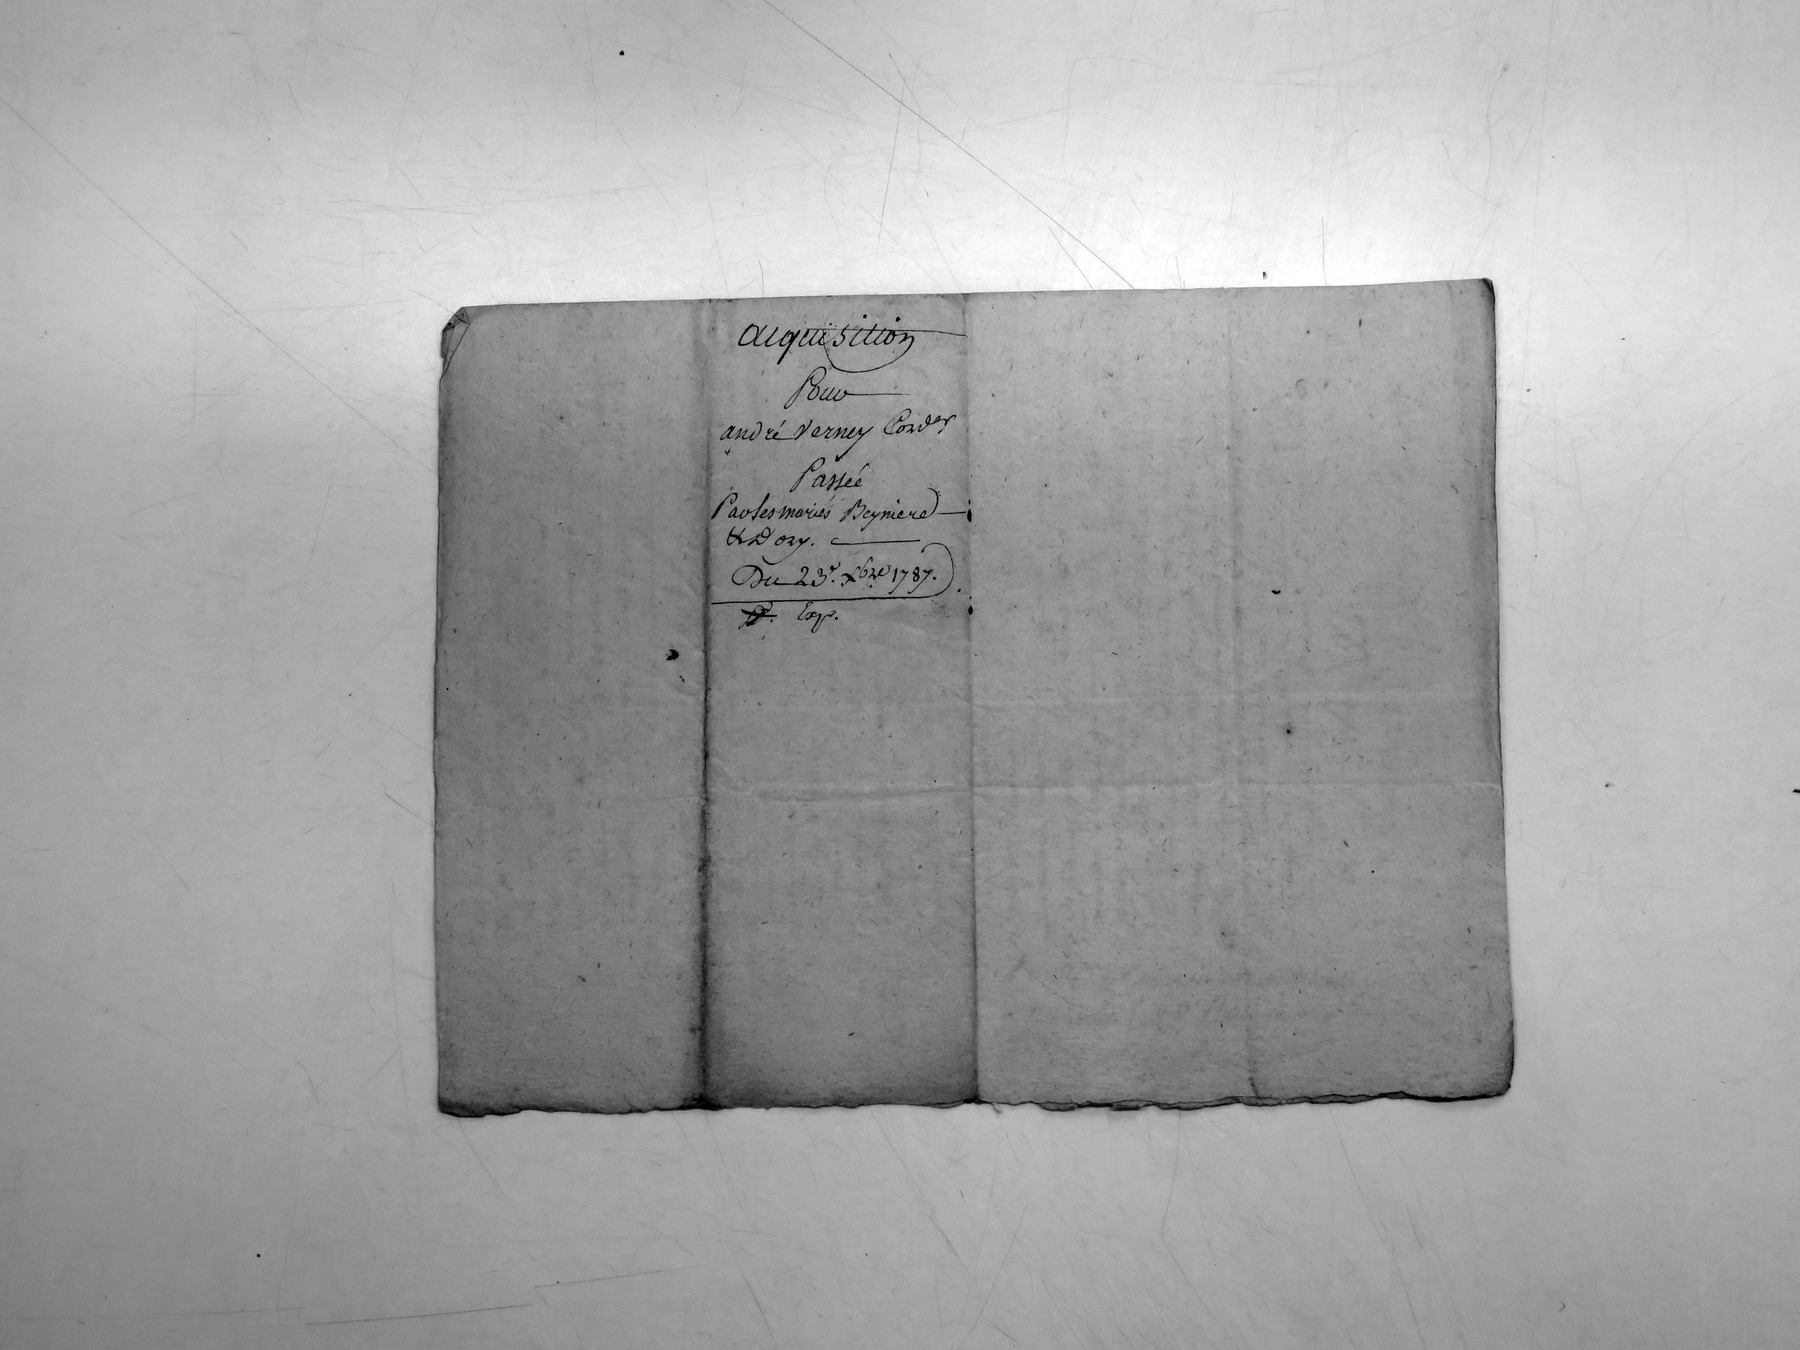 acquisition
Pour
andré Verney Cord.er
Passée
Par les mariés Beyniere
& Dory.
Du 23.e Xbre 1787.
Exp.